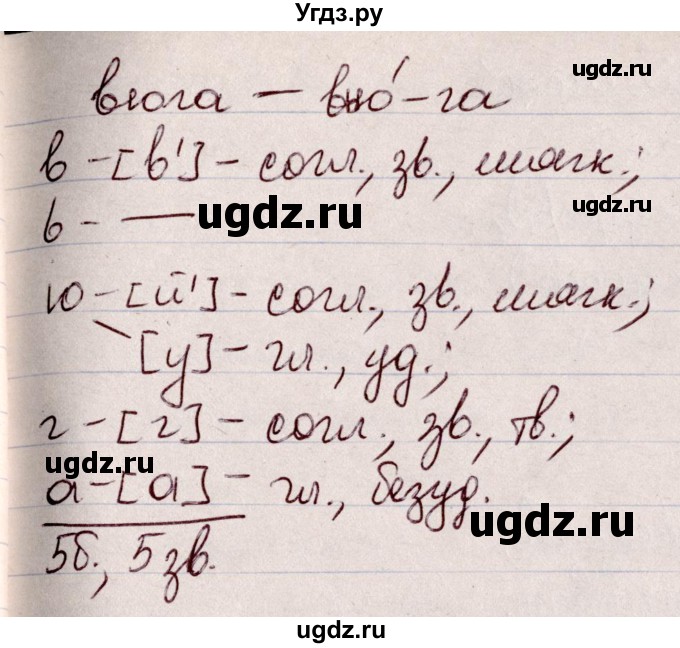 Угдз.ру
ugdz.ru
вьюга – вью́-га
в – [в'] – согл., зв., мягк.;
ь – —
ugdz.ru
ugdz.ru
ю – [й'] – согл., зв., мягк.;
\ [у] – гл., уд.;
г – [г] – согл., зв., тв.;
ugdz.ru
а – [а] – гл., безуд.
ugdz.ru
5б., 5зв.
ugdz.ru